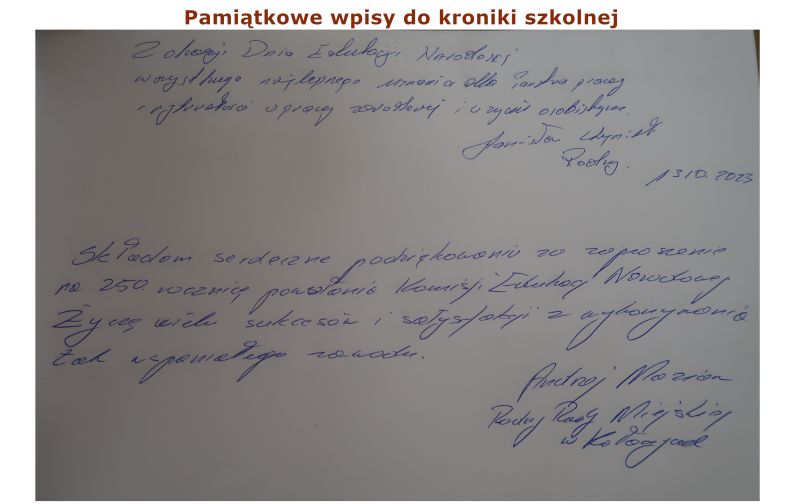 Pamiątkowe wpisy do kroniki szkolnej
Z okazji Dnia Edukacji Narodowej
wszystkiego najlepszego uznania dla Państwa pracy
i wytrwałości w pracy zawodowej i w życiu osobistym.
Radny.
13.10.2023
Składam serdeczne podziękowania za zaproszenie
na 250. rocznicę powołania Komisji Edukacji Narodowej
Życzę wielu sukcesów i satysfakcji z wykonywania
tak wspaniałego zawodu.
Andrzej
Radny Rady Miejskiej
w